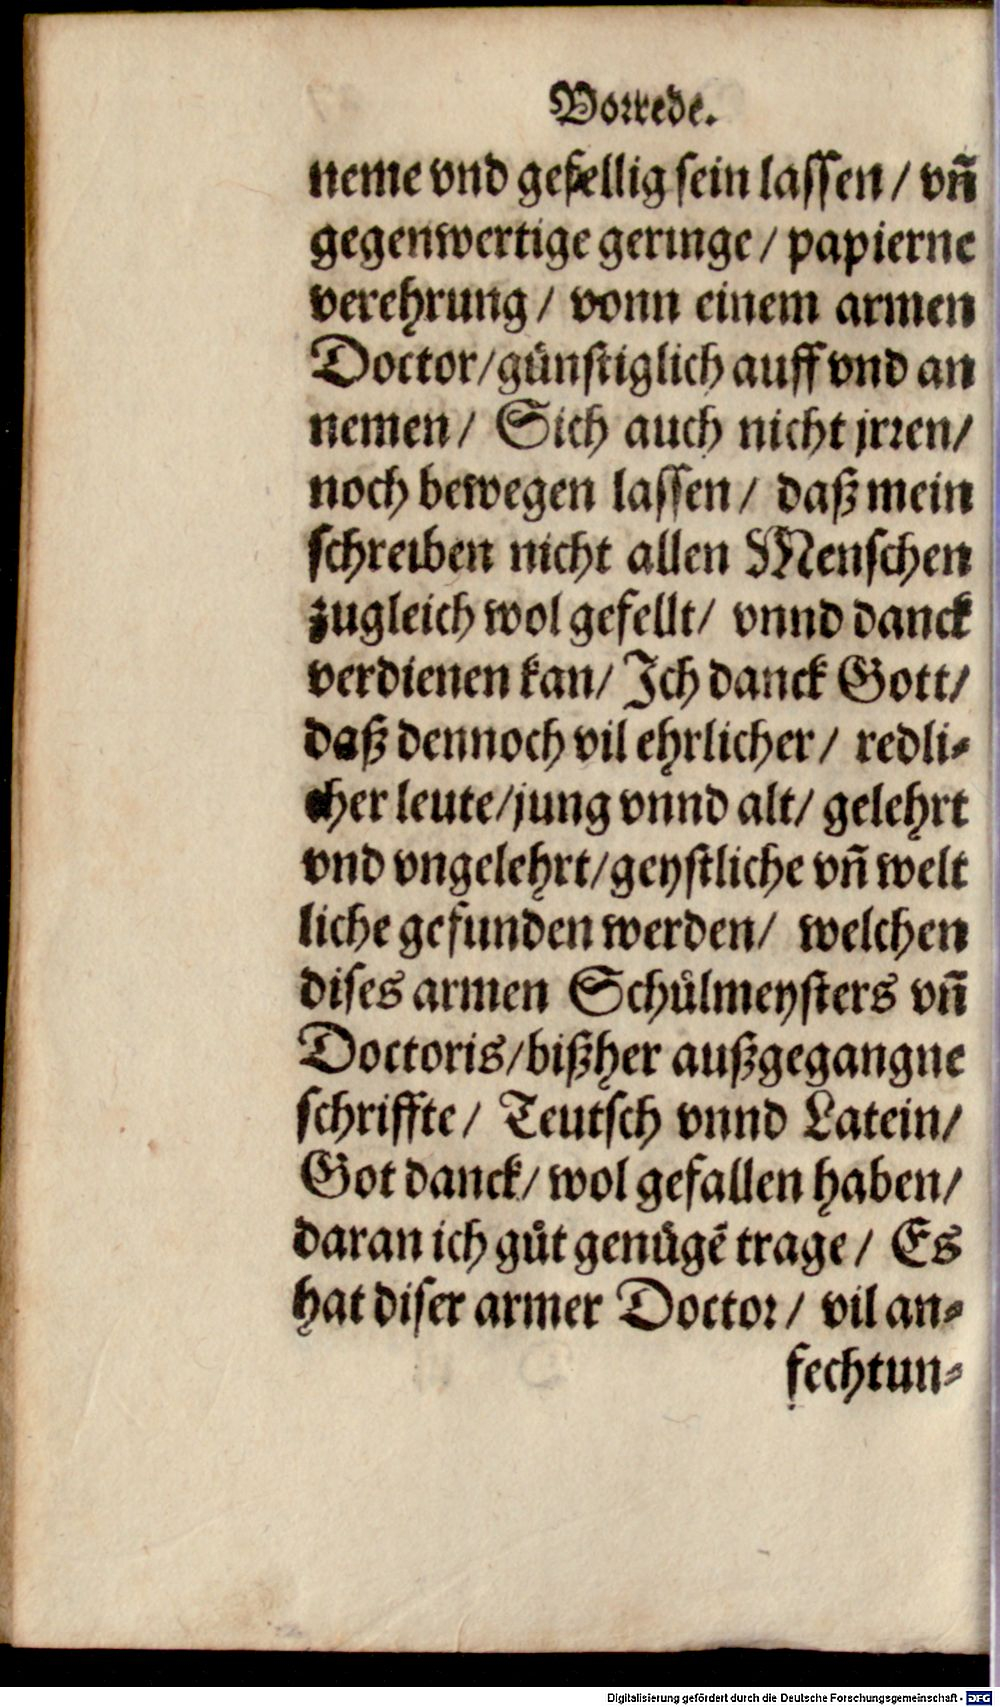 Vorrede.
neme vnd gefellig sein lassen / vñ
gegenwertige geringe / papierne
verehrung / vonn einem armen
Doctor/günstiglich auff vnd an
nemen / Sich auch nicht jrren/
noch bewegen lassen / daß mein
schreiben nicht allen Menschen
zugleich wol gefellt/ vnnd danck
verdienen kan/ Ich danck Gott/
daß dennoch vil ehrlicher / redli-
cher leute/jung vnnd alt/ gelehrt
vnd vngelehrt/geystliche vñ welt
liche gefunden werden/ welchen
dises armen Schůlmeysters vñ
Doctoris/bißher außgegangne
schriffte / Teutsch vnnd Latein/
Got danck/ wol gefallen haben/
daran ich gůt genügẽ trage / Es
hat diser armer Doctor / vil an-
fechtun-
Digitalisierung gefördert durch die Deutsche Forschungsgemeinschaft - DFG